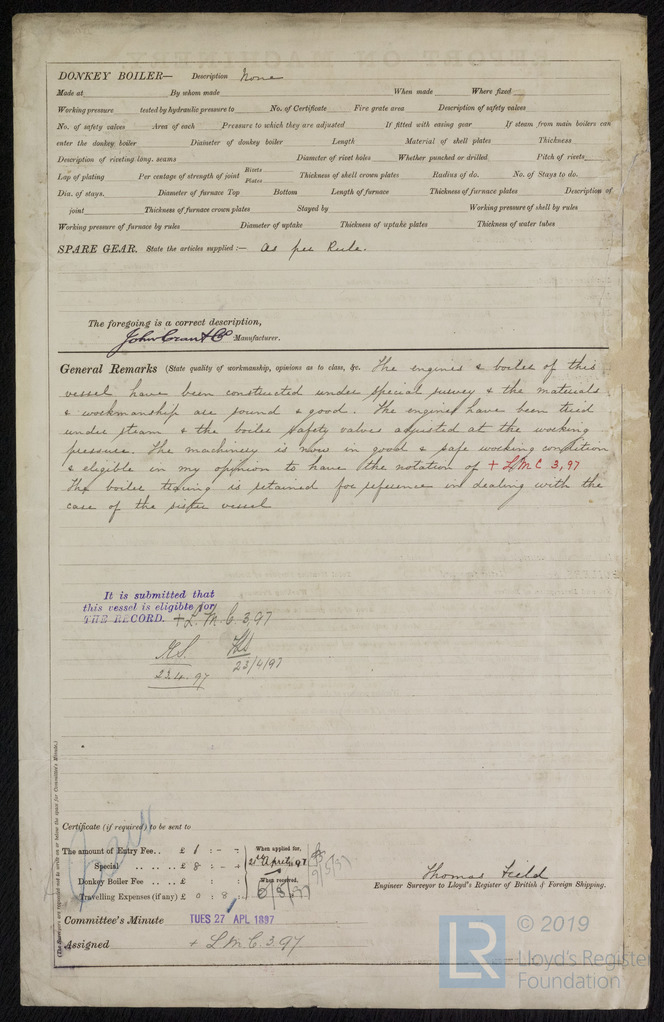 DONKEY BOILER— Description None
Made at By whom made When made Where fixed
Working pressure tested by hydraulic pressure to No. of Certificate Fire grate area Description of safety valves
No. of safety valves Area of each Pressure to which they are adjusted If fitted with easing gear If steam from main boilers can
enter the donkey boiler Diameter of donkey boiler Length Material of shell plates Thickness
Description of riveting long. seams Diameter of rivet holes Whether punched or drilled Pitch of rivets
Lap of plating Per centage of strength of joint Rivets Plates Thickness of shell crown plates Radius of do. No. of Stays to do.
Dia. of stays. Diameter of furnace Top Bottom Length of furnace Thickness of furnace plates Description of
joint Thickness of furnace crown plates Stayed by Working pressure of shell by rules
Working pressure of furnace by rules Diameter of uptake Thickness of uptake plates Thickness of water tubes
SPARE GEAR. State the articles supplied:— As per Rule.
The foregoing is a correct description,
Manufacturer.
General Remarks (State quality of workmanship, opinions as to class, &c. The engines & boiler of this
vessel have been constructed under special survey & the materials
& workmanship are sound & good. The engines have been tried
under steam & the boiler safety valves adjusted at the working
pressure. The machinery is now in good & safe working condition
& eligible in my opinion to have the notation of + LMC 3,97
The boiler tracing is retained for reference in dealing with the
case of the sister vessel
It is submitted that
this vessel is eligible for
THE RECORD. + L.M.C 3,97
23.4.97 23/4/97
(The Surveyors are requested not to write on or below the space for Committee's Minute.)
Certificate (if required) to be sent to
The amount of Entry Fee.. £ 1 : - : - When applied for,
Special .. .. .. £ 8 : - : - 21st April 97
Donkey Boiler Fee .. .. £ : : When received,
Travelling Expenses (if any) £ 0 : 8 :
Thomas Field
Engineer Surveyor to Lloyd's Register of British & Foreign Shipping.
Committee's Minute TUES 27 APL 1897
Assigned + L.M.C. 3.97
© 2019
LR
Lloyd's Register
Foundation